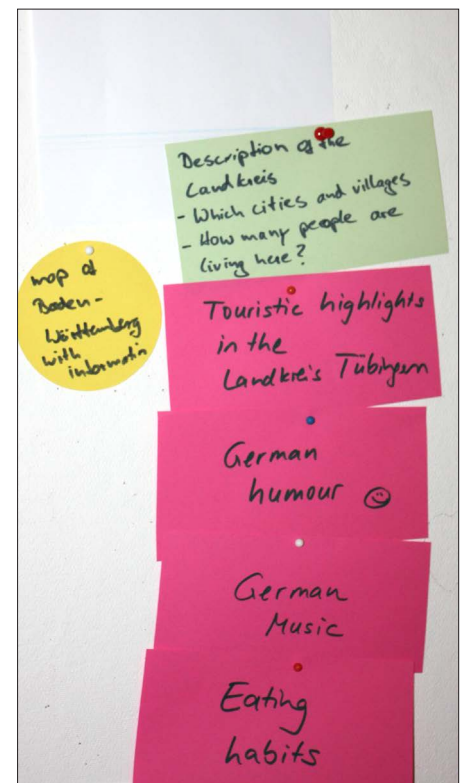 Description of the
Landkreis
- Which cities and villages
- How many people are
living here?
map of
Baden-
Württemberg
with
information
Touristic highlights
in the
Landkreis Tübingen
German
humour ☺
German
Music
Eating
habits